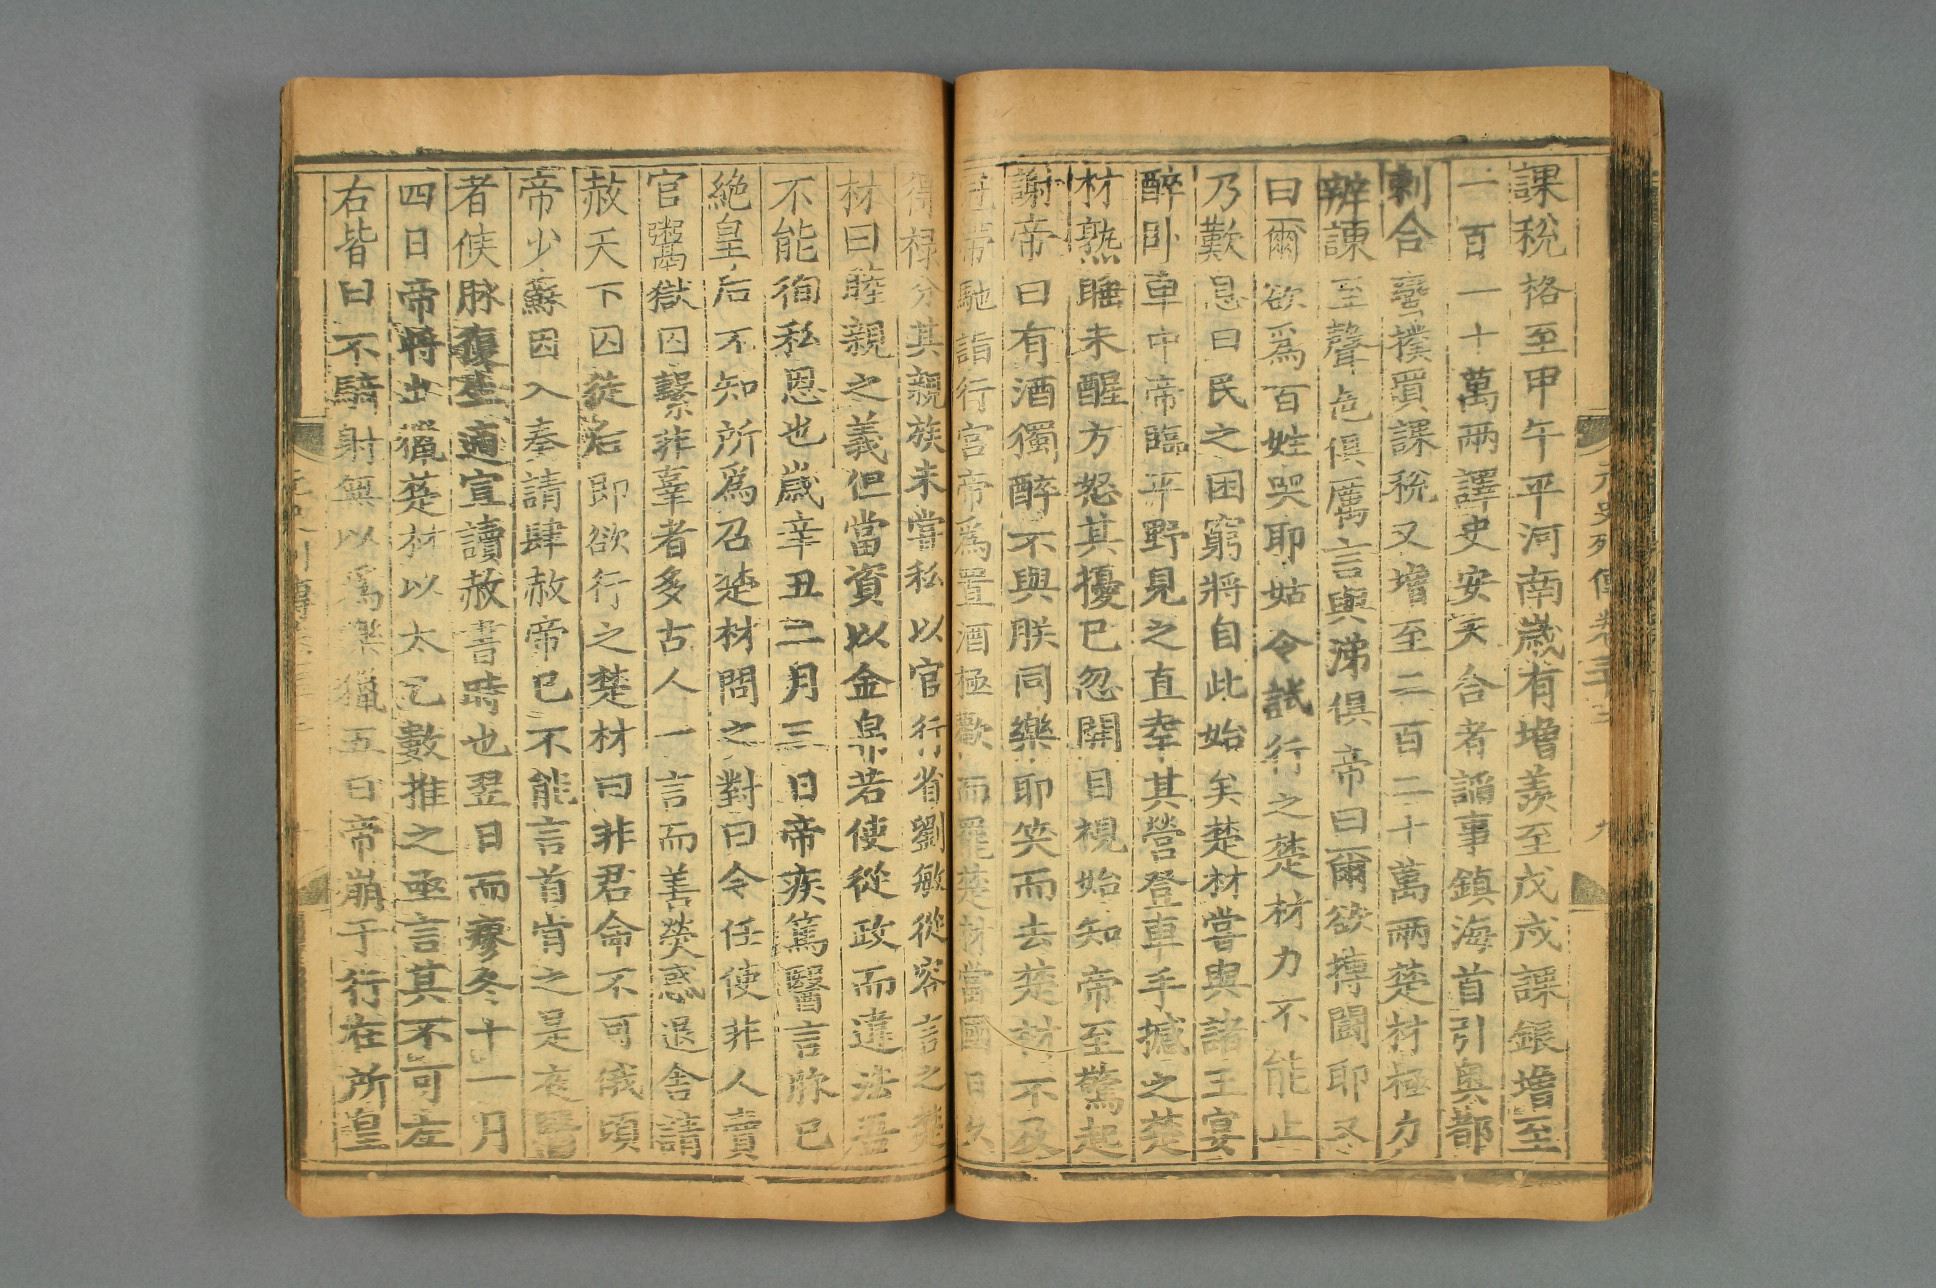 元史列傳卷三十三 九
課稅格至甲午平河南歲有增羨至戊戌課銀增至
一百一十萬兩譯史安天合者諂事鎮海首引奧都
剌合蠻撲買課稅又增至二百二十萬兩楚材極力
辨諫至聲色俱厲言與涕俱帝曰爾欲搏鬬耶又
曰爾欲爲百姓哭耶姑令試行之楚材力不能止
乃歎息曰民之困窮將自此始矣楚材嘗與諸王宴
醉卧車中帝臨平野見之直幸其營登車手撼之楚
材熟睡未醒方怒其擾己忽開目視始知帝至驚起
謝帝曰有酒獨醉不與朕同樂耶笑而去楚材不及
冠帶馳詣行宮帝爲置酒極歡而罷楚材當國日久
得祿分其親族未嘗私以官行省劉敏從容言之楚
材曰睦親之義但當資以金帛若使從政而違法吾
不能徇私恩也歲辛丑二月三日帝疾篤醫言脉已
絶皇后不知所爲召楚材問之對曰今任使非人賣
官鬻獄囚繫非辜者多古人一言而善熒惑退舍請
赦天下囚徒后即欲行之楚材曰非君命不可俄頃
帝少蘇因入奏請肆赦帝已不能言首肯之是夜醫
者候脉復生適宣讀赦書時也翌日而瘳冬十一月
四日帝將出獵楚材以太乙數推之亟言其不可左
右皆曰不騎射無以爲樂獵五日帝崩于行在所皇